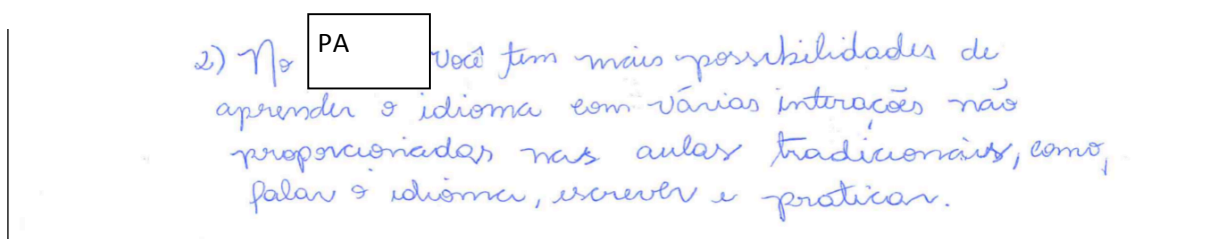 2) No PA você tem mais possibilidades de
aprender o idioma com várias interações não
proporcionadas nas aulas tradicionais, como,
falar o idioma, escrever e praticar.